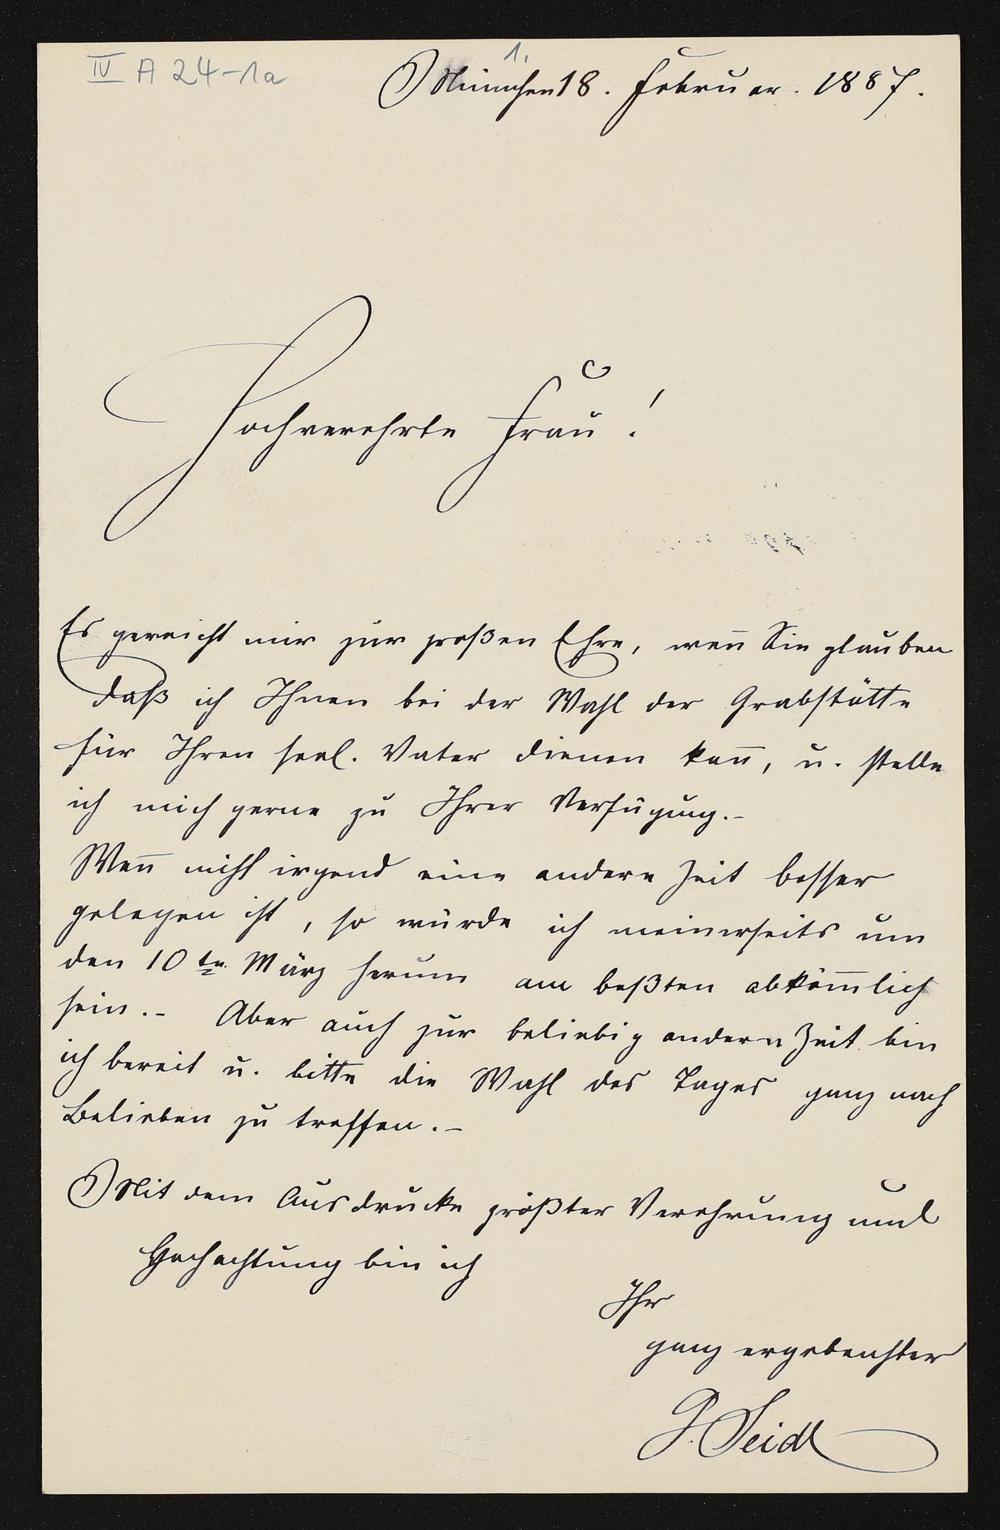 IV A 24-1a
1.
München 18. Februar. 1887.
Hochverehrte Frau!
Es gereicht mir zur großen Ehre, weñ Sie glauben
daß ich Ihnen bei der Wahl der Grabstätte
für Ihren seel. Vater dienen kañ, u. stelle
ich mich gerne zu Ihrer Verfügung.-
Weñ nicht irgend eine andere Zeit besser
gelegen ist, so würde ich meinerseits um
den 10ten März herum am beßten abköm̄lich
sein.- Aber auch zur beliebig andern Zeit bin
ich bereit u. bitte die Wahl des Tages ganz nach
Belieben zu treffen.-
Mit dem Ausdrucke größter Verehrung und
Hochachtung bin ich
Ihr
ganz ergebenster
G. Seidl